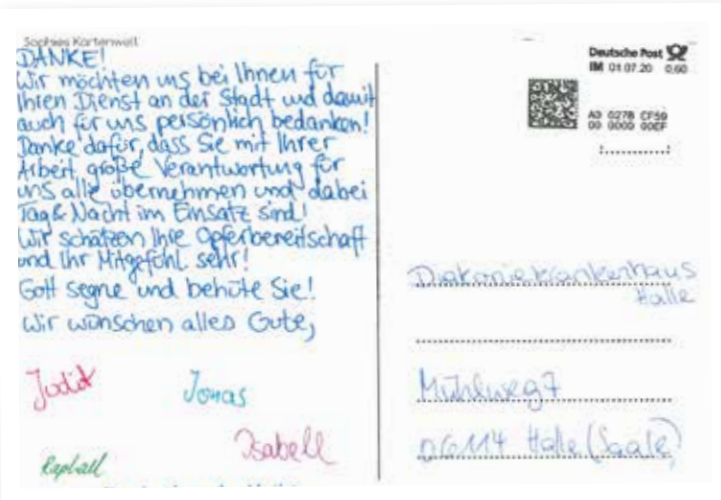 Sophies Kartenwelt
DANKE!
Wir möchten uns bei Ihnen für
Ihren Dienst an der Stadt und damit
auch für uns persönlich bedanken!
Danke dafür, dass Sie mit Ihrer
Arbeit große Verantwortung für
uns alle übernehmen und dabei
Tag & Nacht im Einsatz sind!
Wir schätzen Ihre Opferbereitschaft
und Ihr Mitgefühl sehr!
Gott segne und behüte Sie!
Wir wünschen alles Gute,
Judit
Jonas
Isabell
Raphael
Deutsche Post
IM 01.07.20 0,60
A0 0278 CF59
00 0000 00EF
Diakoniekrankenhaus
Halle
Mühlweg 7
06114 Halle (Saale)